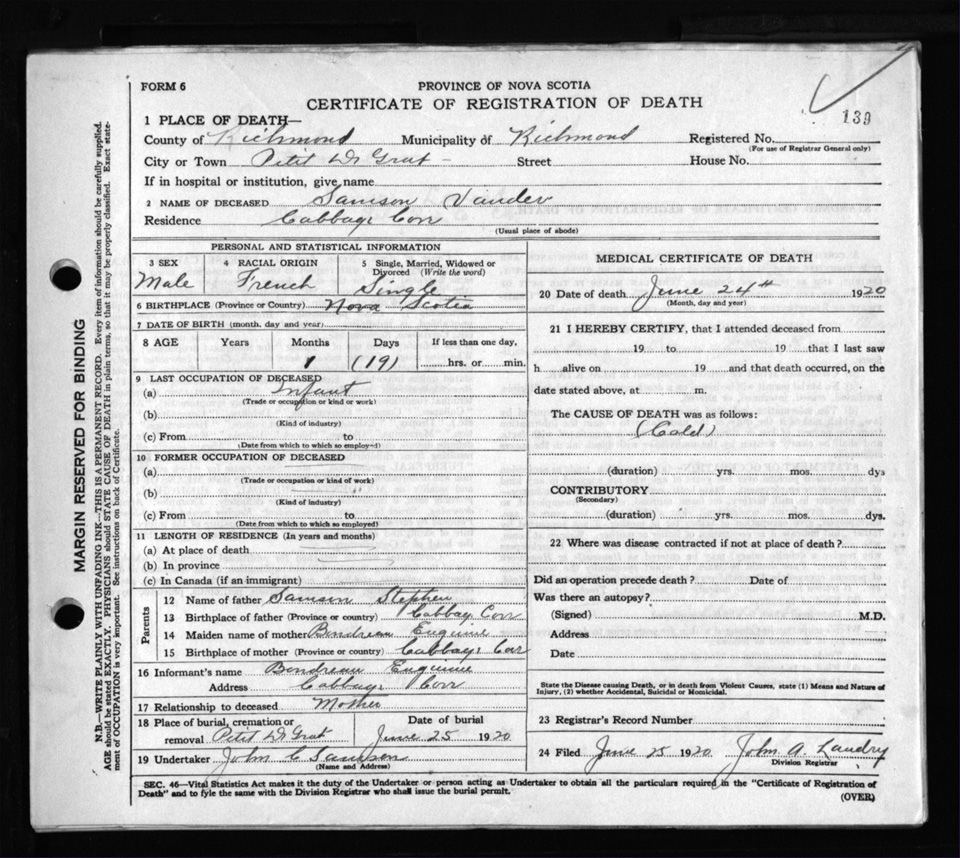 FORM 6
PROVINCE OF NOVA SCOTIA
CERTIFICATE OF REGISTRATION OF DEATH
139
1 PLACE OF DEATH—
County of Richmond Municipality of Richmond Registered No.
(For use of Registrar General only)
City or Town Petit D. Grat Street House No.
If in hospital or institution, give name
2 NAME OF DECEASED Samson Vander
Residence Cabbage Corr
(Usual place of abode)
PERSONAL AND STATISTICAL INFORMATION
3 SEX 4 RACIAL ORIGIN 5 Single, Married, Widowed or
Divorced (Write the word)
Male French Single
6 BIRTHPLACE (Province or Country) Nova Scotia
7 DATE OF BIRTH (month, day and year)
8 AGE Years Months Days If less than one day,
1 (19) hrs. or min.
9 LAST OCCUPATION OF DECEASED
(a) Infant
(Trade or occupation or kind or work)
(b)
(Kind of industry)
(c) From to
(Date from which to which so employed)
10 FORMER OCCUPATION OF DECEASED
(a)
(Trade or occupation or kind of work)
(b)
(Kind of industry)
(c) From to
(Date from which to which so employed)
11 LENGTH OF RESIDENCE (In years and months)
(a) At place of death
(b) In province
(c) In Canada (if an immigrant)
Parents
12 Name of father Samson Stephen
13 Birthplace of father (Province or country) Cabbag Corr
14 Maiden name of mother Bondreau Euquine
15 Birthplace of mother (Province or country) Cabbage Cor
16 Informant's name Bondreau Euquine
Address Cabbage Corr
17 Relationship to deceased Mother
18 Place of burial, cremation or removal Petit D. Grat
Date of burial June 25 1920
19 Undertaker John C Samson
(Name and Address)
MEDICAL CERTIFICATE OF DEATH
20 Date of death June 24th 1920
(Month, day and year)
21 I HEREBY CERTIFY, that I attended deceased from
19 to 19 that I last saw
h alive on 19 and that death occurred, on the
date stated above, at m.
The CAUSE OF DEATH was as follows:
(Cold)
(duration) yrs. mos. dys
CONTRIBUTORY
(Secondary)
(duration) yrs. mos. dys.
22 Where was disease contracted if not at place of death?
Did an operation precede death? Date of
Was there an autopsy?
(Signed) M.D.
Address
Date
State the Disease causing Death, or in death from Violent Causes, state (1) Means and Nature of
Injury, (2) whether Accidental, Suicidal or Homicidal.
23 Registrar's Record Number
24 Filed June 25 1920 John A. Landry
Division Registrar
SEC. 46—Vital Statistics Act makes it the duty of the Undertaker or person acting as Undertaker to obtain all the particulars required in the "Certificate of Registration of
Death" and to fyle the same with the Division Registrar who shall issue the burial permit.
(OVER)
MARGIN RESERVED FOR BINDING
N.B.—WRITE PLAINLY WITH UNFADING INK—THIS IS A PERMANENT RECORD. Every item of information should be carefully supplied.
AGE should be stated EXACTLY. PHYSICIANS should STATE CAUSE OF DEATH in plain terms, so that it may be properly classified. Exact state-
ment of OCCUPATION is very important. See instructions on back of Certificate.